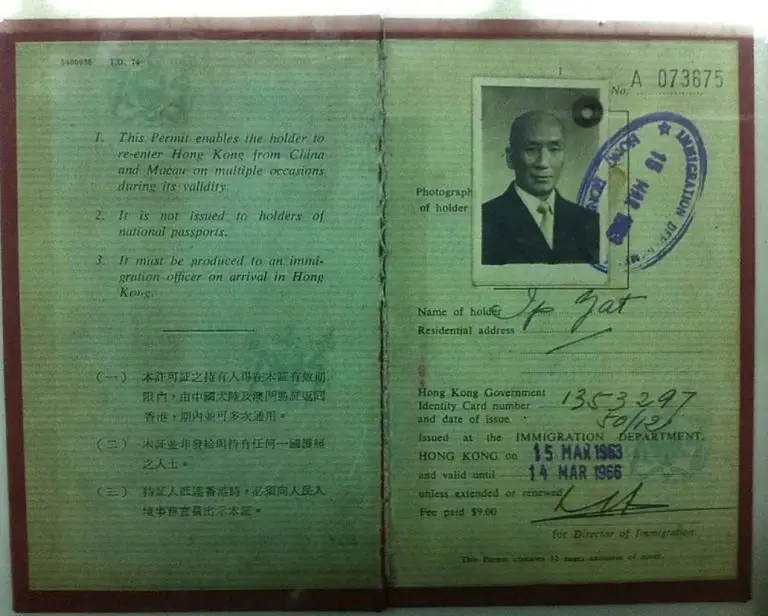 I.D. 74
1. This Permit enables the holder to
re-enter Hong Kong from China
and Macau on multiple occasions
during its validity.
2. It is not issued to holders of
national passports.
3. It must be produced to an immi-
gration officer on arrival in Hong
Kong.
(一) 本許可証之持有人得在本証有效期
限內，由中國大陸及澳門憑証返回
香港，期內並可多次通用。
(二) 本証並非發給與持有任何一國護照
之人士。
(三) 持証人抵達香港時，必須向人民入
境事務官員出示本証。
1
No. A 073675
IMMIGRATION
HONG KONG
15 MAR 1963
Photograph
of holder
Name of holder Ip Yat
Residential address
Hong Kong Government
Identity Card number 1353297
and date of issue
Issued at the IMMIGRATION DEPARTMENT,
HONG KONG on 15 MAR 1963
and valid until 14 MAR 1966
unless extended or renewed
Fee paid $9.00
for Director of Immigration.
This Permit contains 32 pages exclusive of cover.